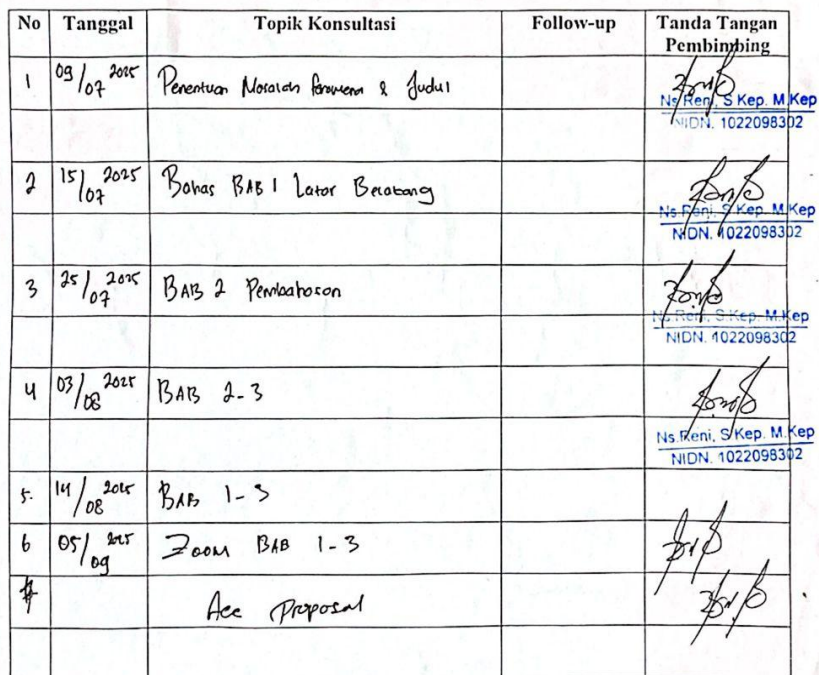 No Tanggal Topik Konsultasi Follow-up Tanda Tangan
Pembimbing
1 09/07 2025 Penentuan Masalah & Judul
Ns Reni, S Kep. M.Kep
NIDN. 1022098302
2 15/07 2025 Bahas BAB 1 Latar Belakang
Ns Reni, S.Kep. M.Kep
NIDN. 1022098302
3 25/07 2025 BAB 2 Pembahasan
Ns Reni, S.Kep. M.Kep
NIDN. 1022098302
4 03/08 2025 BAB 2-3
Ns.Reni, S.Kep. M.Kep
NIDN. 1022098302
5. 14/08 2025 BAB 1-3
6 05/09 2025 Zoom BAB 1-3
Acc Proposal